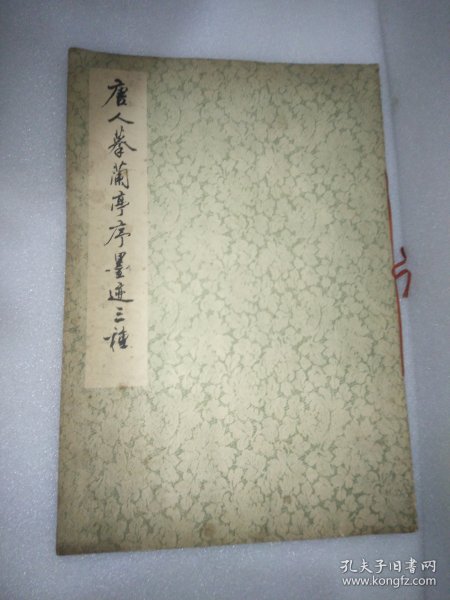 唐人摹蘭亭序墨迹三種
孔夫子旧书网
www.kongfz.com